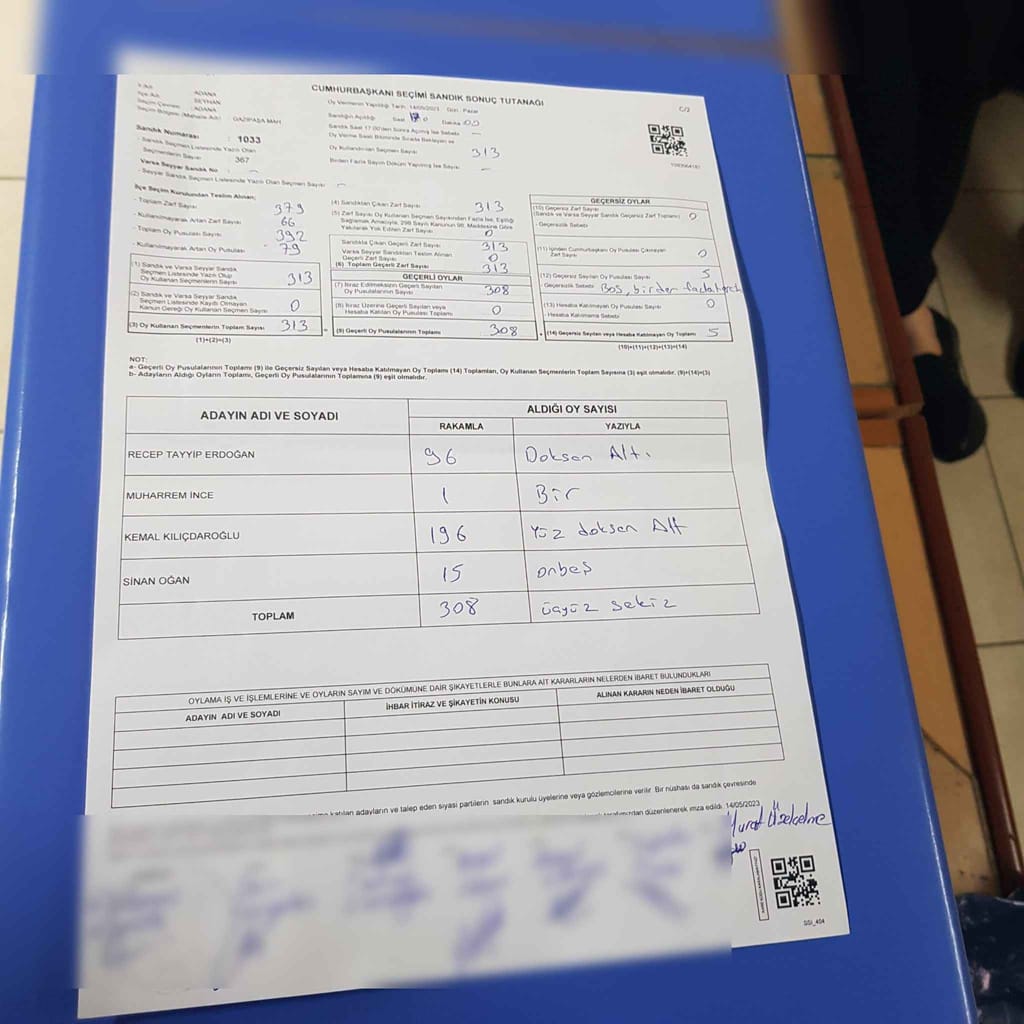 CUMHURBAŞKANI SEÇİMİ SANDIK SONUÇ TUTANAĞI
C/2
İl Adı : ADANA
İlçe Adı : SEYHAN
Seçim Çevresi : ADANA
Seçim Bölgesi (Mahalle Adı) : GAZİPAŞA MAH.
Sandık Numarası : 1033
- Sandık Seçmen Listesinde Yazılı Olan
Seçmenlerin Sayısı : 367
Varsa Seyyar Sandık No : -
- Seyyar Sandık Seçmen Listesinde Yazılı Olan Seçmen Sayısı -
Oy Vermenin Yapıldığı Tarih: 14/05/2023 Gün: Pazar
Sandığın Açıldığı Saat Dakika 00
Sandık Saat 17.00'den Sonra Açılmış İse Sebebi -
Oy Verme Saati Bitiminde Sırada Bekleyen ve
Oy Kullandırılan Seçmen Sayısı 313
Birden Fazla Sayım Döküm Yapılmış İse Sayısı -
İlçe Seçim Kurulundan Teslim Alınan;
- Toplam Zarf Sayısı 379
- Kullanılmayarak Artan Zarf Sayısı 66
- Toplam Oy Pusulası Sayısı 392
- Kullanılmayarak Artan Oy Pusulası 79
(1) Sandık ve Varsa Seyyar Sandık
Seçmen Listesinde Yazılı Olup
Oy Kullanan Seçmen Sayısı 313
(2) Sandık ve Varsa Seyyar Sandık
Seçmen Listesinde Kayıtlı Olmayan
Kanun Gereği Oy Kullanan Seçmen Sayısı 0
(3) Oy Kullanan Seçmenlerin Toplam Sayısı 313
(1)+(2)=(3)
(4) Sandıktan Çıkan Zarf Sayısı 313
(5) Zarf Sayısı Oy Kullanan Seçmen Sayısından Fazla İse, Eşitliği
Sağlamak Amacıyla, 298 Sayılı Kanunun 98. Maddesine Göre
Yakılarak Yok Edilen Zarf Sayısı 0
Sandıkta Çıkan Geçerli Zarf Sayısı 313
Varsa Seyyar Sandıktan Teslim Alınan
Geçerli Zarf Sayısı 0
(6) Toplam Geçerli Zarf Sayısı 313
GEÇERLİ OYLAR
(7) İtiraz Edilmeksizin Geçerli Sayılan
Oy Pusulalarının Sayısı 308
(8) İtiraz Üzerine Geçerli Sayılan veya
Hesaba Katılan Oy Pusulası Sayısı 0
(9) Geçerli Oy Pusulalarının Toplamı 308
GEÇERSİZ OYLAR
(10) Geçersiz Zarf Sayısı
(Sandık ve Varsa Seyyar Sandık Geçersiz Zarf Toplamı) 0
- Geçersizlik Sebebi
(11) İçinden Cumhurbaşkanı Oy Pusulası Çıkmayan
Zarf Sayısı 0
(12) Geçersiz Sayılan Oy Pusulası Sayısı 5
- Geçersizlik Sebebi Boş, birden fazla tercih
(13) Hesaba Katılmayan Oy Pusulası Sayısı 0
- Hesaba Katılmama Sebebi
(14) Geçersiz Sayılan veya Hesaba Katılmayan Oy Toplamı 5
(10)+(11)+(12)+(13)=(14)
NOT:
a- Geçerli Oy Pusulalarının Toplamı (9) ile Geçersiz Sayılan veya Hesaba Katılmayan Oy Toplamı (14) Toplamları, Oy Kullanan Seçmenlerin Toplam Sayısına (3) eşit olmalıdır. (9)+(14)=(3)
b- Adayların Aldığı Oyların Toplamı, Geçerli Oy Pusulalarının Toplamına (9) eşit olmalıdır.
ADAYIN ADI VE SOYADI ALDIĞI OY SAYISI
RAKAMLA YAZIYLA
RECEP TAYYİP ERDOĞAN 96 Doksan Altı
MUHARREM İNCE 1 Bir
KEMAL KILIÇDAROĞLU 196 Yüz doksan Altı
SİNAN OĞAN 15 onbeş
TOPLAM 308 üçyüz sekiz
OYLAMA İŞ VE İŞLEMLERİNE VE OYLARIN SAYIM VE DÖKÜMÜNE DAİR ŞİKAYETLERLE BUNLARA AİT KARARLARIN NELERDEN İBARET BULUNDUKLARI
ADAYIN ADI VE SOYADI İHBAR İTİRAZ VE ŞİKAYETİN KONUSU ALINAN KARARIN NEDEN İBARET OLDUĞU
katılan adayların ve talep eden siyasi partilerin sandık kurulu üyelerine veya gözlemcilerine verilir. Bir nüshası da sandık çevresinde
tarafımızdan düzenlenerek imza edildi. 14/05/2023
SSI_404